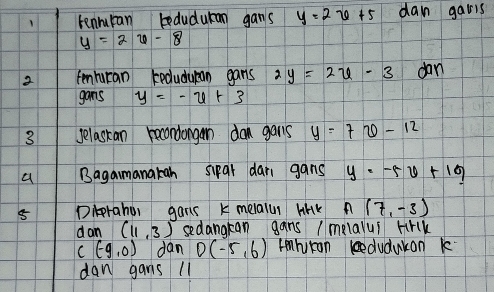 1 tentukan kedudukan garis y = 2x + 5 dan garis
y = 2x - 8
2 tentukan kedudukan garis 2y = 2x - 3 dan
garis y = -x + 3
3 Jelaskan kecondongan dari garis y = 7x - 12
4 Bagaimanakah sipat dari garis y = -5x + 19
5 Diketahui garis k melalui titik A (7, -3)
dan (11, 3) sedangkan garis l melalui titik
C (-9, 0) dan D (-5, 6) tentukan kedudukan k
dan garis l!